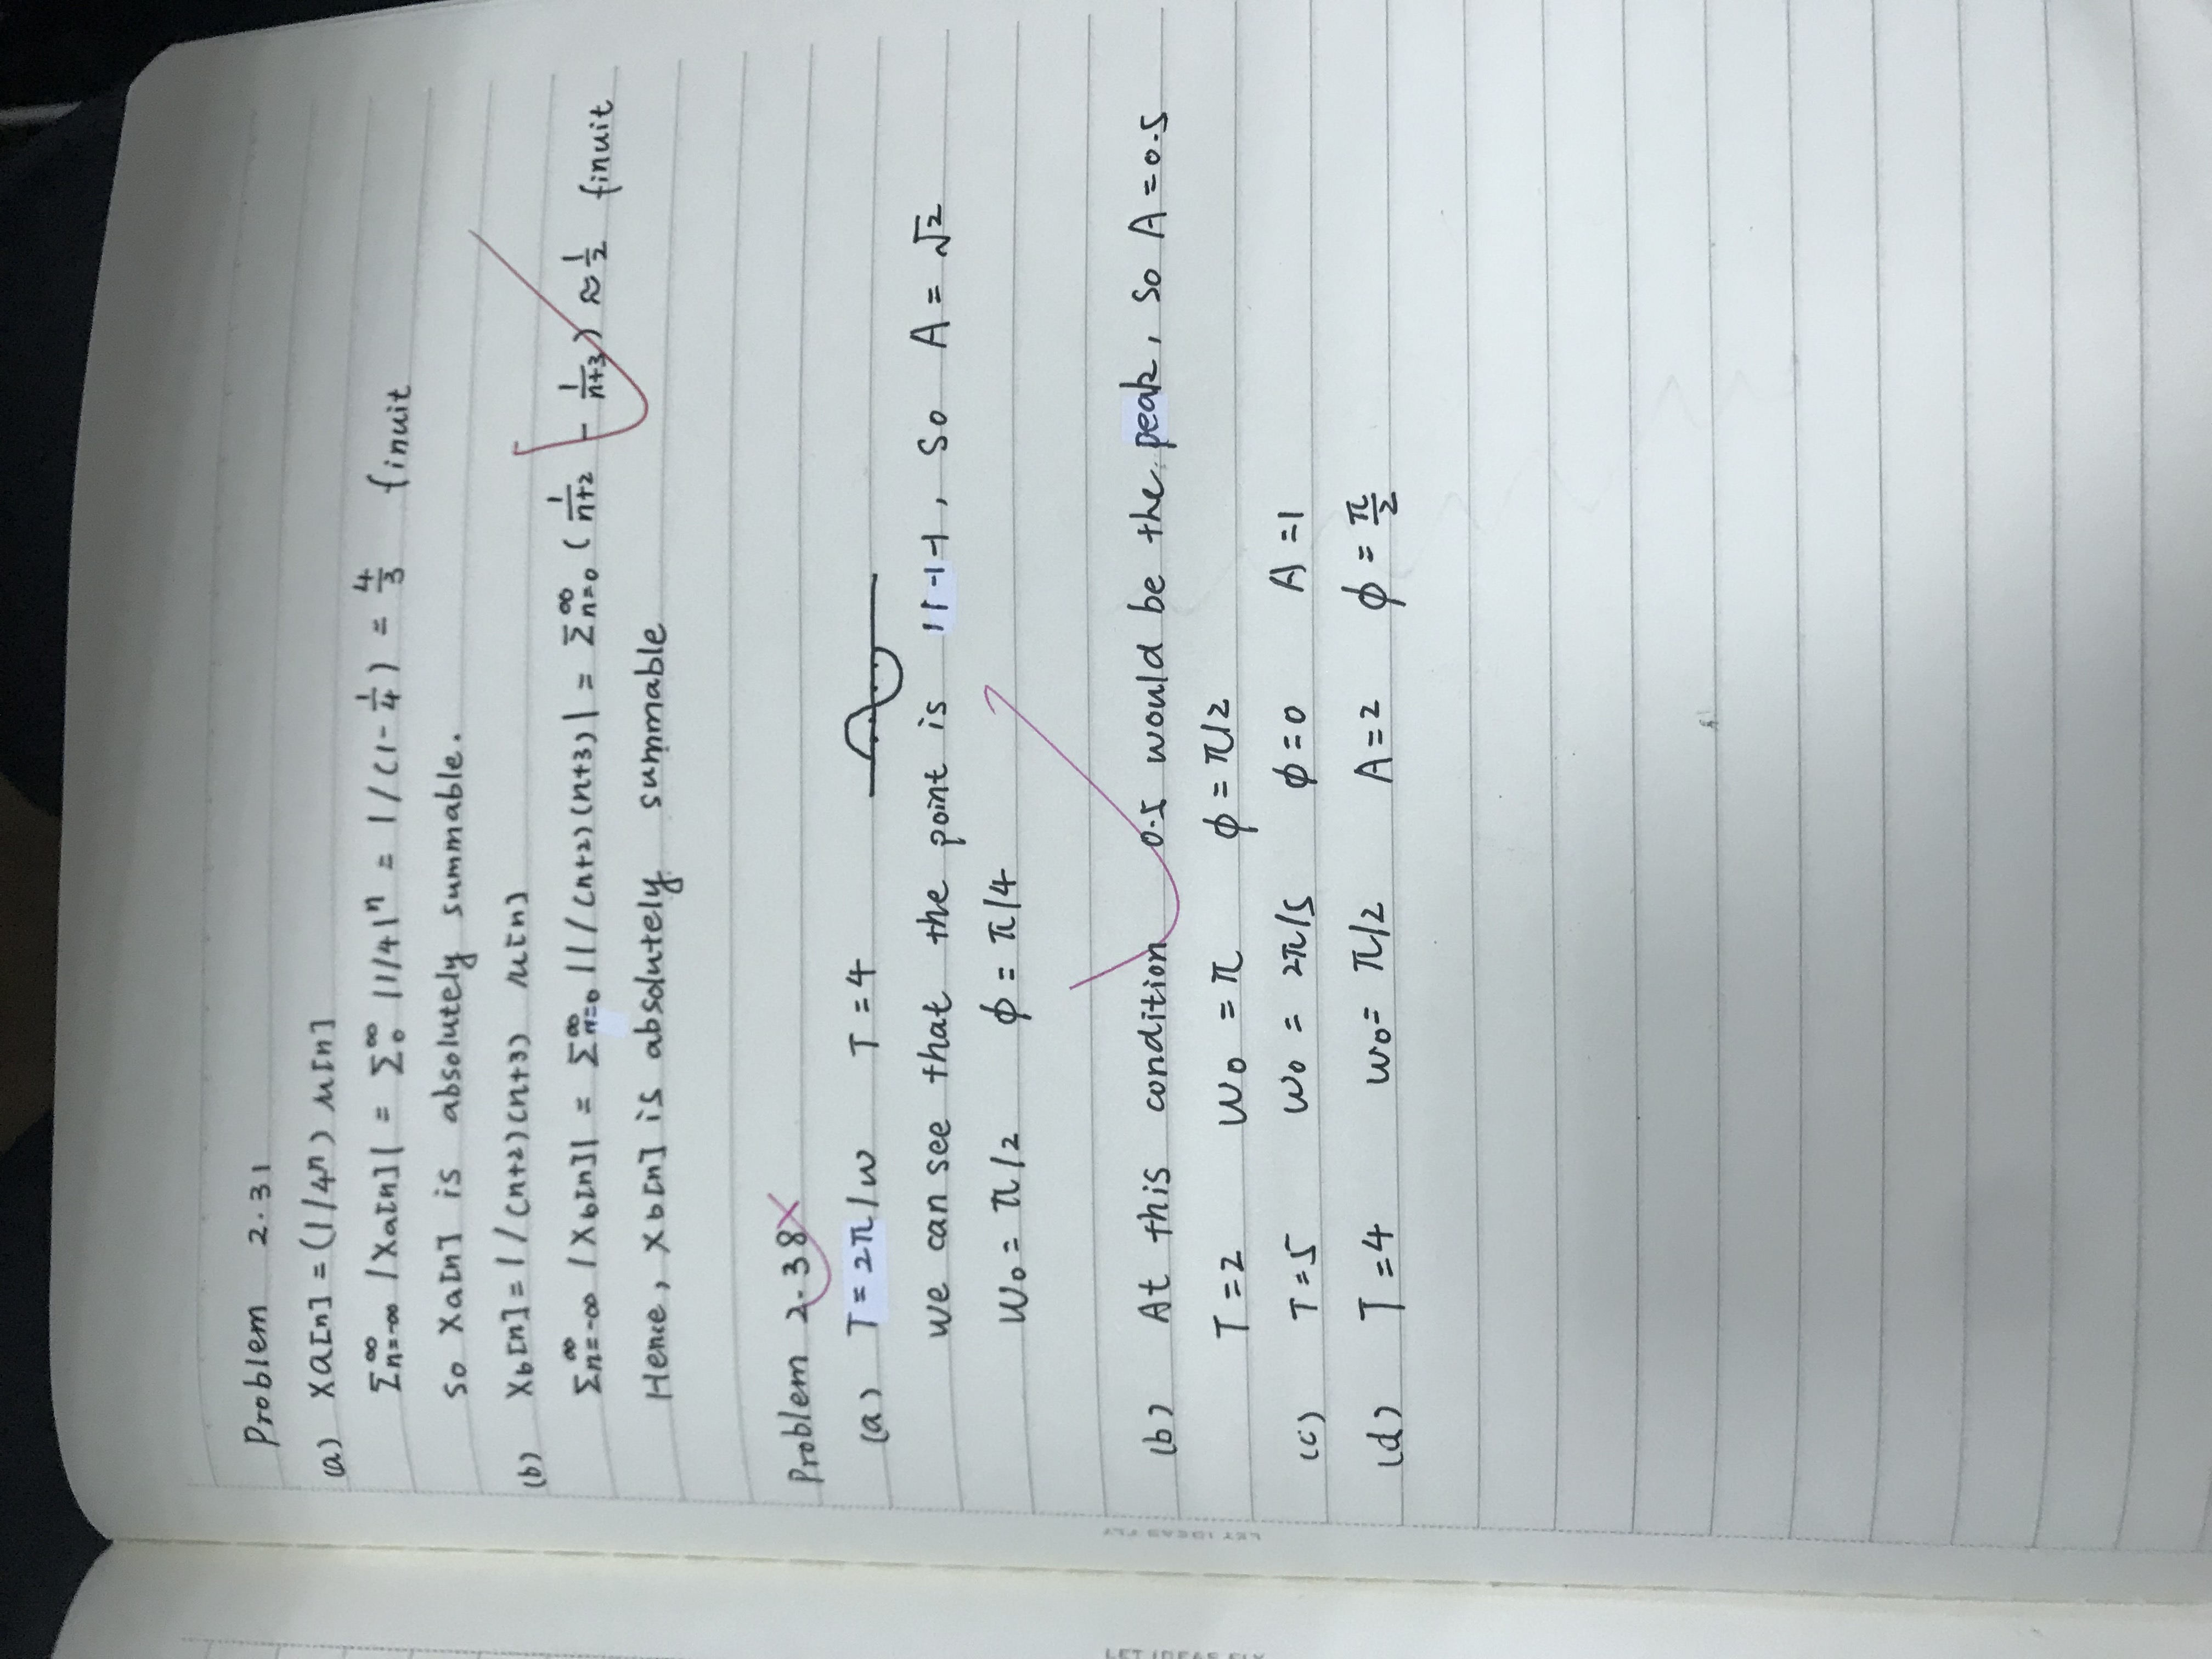 Problem 2.31
(a) Xa[n] = (1/4ⁿ) μ[n]
Σn=-∞^∞ |Xa[n]| = Σ0^∞ |1/4|ⁿ = 1/(1-1/4) = 4/3 finuit
so Xa[n] is absolutely summable.
(b) Xb[n] = 1/(n+2)(n+3) μ[n]
Σn=-∞^∞ |Xb[n]| = Σn=0^∞ |1/(n+2)(n+3)| = Σn=0^∞ (1/n+2 - 1/n+3) ≈ 1/2 finuit
Hence, Xb[n] is absolutely summable
Problem 2.38
(a) T = 2π/w T = 4
we can see that the point is 11-1-1, so A = √2
w0 = π/2 ϕ = π/4
(b) At this condition 0.5 would be the peak, so A = 0.5
T = 2 w0 = π ϕ = π/2
(c) T = 5 w0 = 2π/5 ϕ = 0 A = 1
(d) T = 4 w0 = π/2 A = 2 ϕ = π/2
LET IDEAS FLY